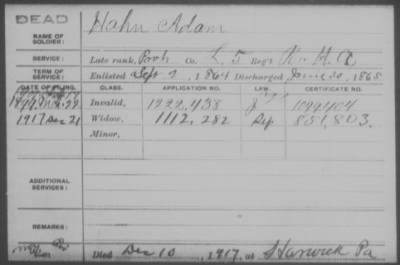 DEAD
NAME OF SOLDIER: Hahn Adam
SERVICE: Late rank, Co. L, 5 Reg't
TERM OF SERVICE: Enlisted Sept 2, 1864 Discharged June 30, 1865
DATE OF FILING. CLASS. APPLICATION NO. LAW. CERTIFICATE NO.
Invalid, 1222,438
1917 Dec 21 Widow, 1112,282 851,803.
Minor,
ADDITIONAL SERVICES:
REMARKS:
Died Dec 10, 1917, at Harwick Pa